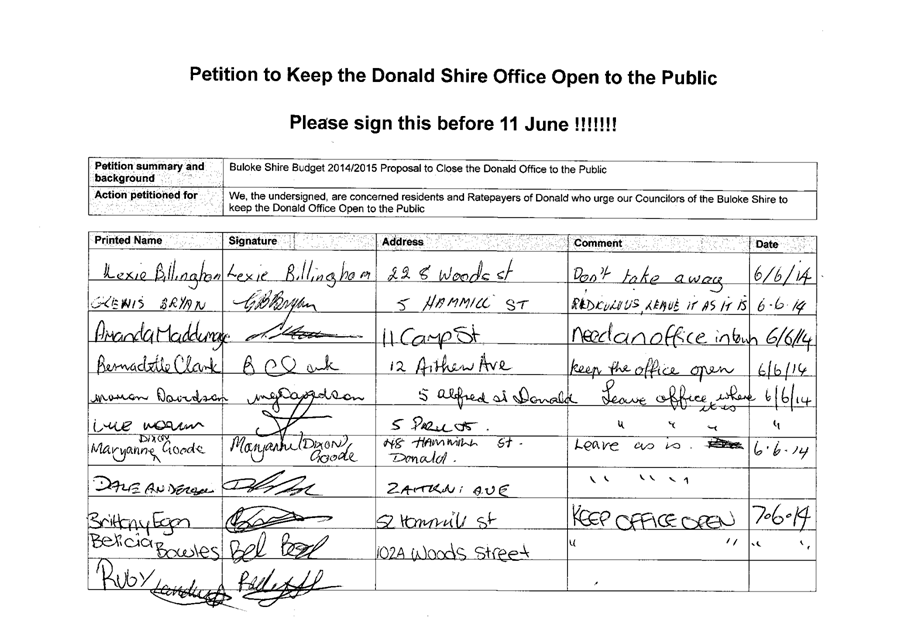 Petition to Keep the Donald Shire Office Open to the Public
Please sign this before 11 June !!!!!!!
Petition summary and background Buloke Shire Budget 2014/2015 Proposal to Close the Donald Office to the Public
Action petitioned for We, the undersigned, are concerned residents and Ratepayers of Donald who urge our Councilors of the Buloke Shire to
keep the Donald Office Open to the Public
Printed Name Signature Address Comment Date
Lexie Billingham Lexie Billingham 228 Woods st Don't take away 6/6/14
GLENIS BRYAN GBBryan 5 HAMMILL ST REDICULOUS, LEAVE IT AS IT IS 6-6-14
Amanda 11 Camp St Need an office in town 6/6/14
Bernadette Clark B Clark 12 Aitken Ave keep the office open 6/6/14
Marion Davidson Davidson 5 alfred st Donald Leave office where it is 6/6/14
5 " " " "
Maryanne Dixon Goode Maryanne (Dixon) Goode 48 HAMMILL St. Donald. Leave as is. 6.6.14
DALE ANDERSON 2 AITKEN AVE " " "
Brittony Egan 52 Hammill st KEEP OFFICE OPEN 7.6.14
Belicia Bowles Bel 102A Woods Street " " " "
RUBY